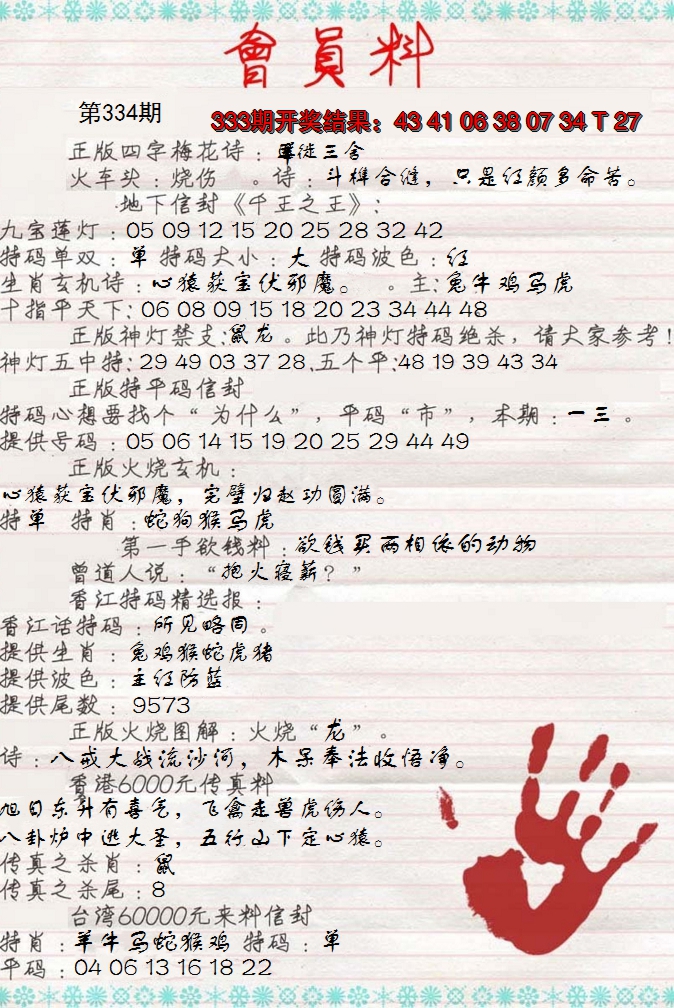 會員料
第334期
333期开奖结果：43 41 06 38 07 34 T 27
正版四字梅花诗：罩徒三舍
火车头：烧伤 。诗：斗榫合缝，只是红颜多命苦。
地下信封《千王之王》：
九宝莲灯：05 09 12 15 20 25 28 32 42
特码单双：单 特码大小：大 特码波色：红
生肖玄机诗：心猿获宝伏邪魔。 。主：兔牛鸡马虎
十指平天下：06 08 09 15 18 20 23 34 44 48
正版神灯禁支：鼠龙。此乃神灯特码绝杀，请大家参考！
神灯五中特：29 49 03 37 28.五个平：48 19 39 43 34
正版特平码信封
特码心想要找个“为什么”，平码“市”，本期：一三。
提供号码：05 06 14 15 19 20 25 29 44 49
正版火烧玄机：
心猿获宝伏邪魔，完璧归赵功圆满。
特单 特肖：蛇狗猴马虎
第一手欲钱料：欲钱买两相依的动物
曾道人说：“抱火寝薪？”
香江特码精选报：
香江话特码：所见略同。
提供生肖：兔鸡猴蛇虎猪
提供波色：主红防蓝
提供尾数：9573
正版火烧图解：火烧“龙”。
诗：八戒大战流沙河，木呆奉法收悟净。
香港6000元传真料
旭日东升有喜气，飞禽走兽虎伤人。
八卦炉中逃大圣，五行山下定心猿。
传真之杀肖：鼠
传真之杀尾：8
台湾60000元来料信封
特肖：羊牛马蛇猴鸡 特码：单
平码：04 06 13 16 18 22